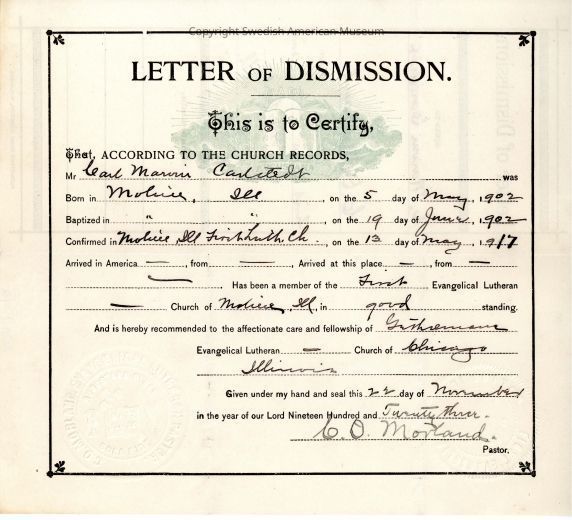 Copyright Swedish American Museum
LETTER OF DISMISSION.
This is to Certify,
That, ACCORDING TO THE CHURCH RECORDS,
Mr Carl Marvin Carlstedt was
Born in Moline, Ill on the 5 day of May, 1902
Baptized in " " on the 19 day of June, 1902
Confirmed in Moline Ill First Luth. Ch. on the 13 day of May, 1917
Arrived in America — , from — Arrived at this place — , from —
— Has been a member of the First Evangelical Lutheran
— Church of Moline, Ill, in good standing.
And is hereby recommended to the affectionate care and fellowship of Gethsemane
Evangelical Lutheran — Church of Chicago
Illinois
Given under my hand and seal this 22 day of November
in the year of our Lord Nineteen Hundred and Twenty three.
C. O. Morland.
Pastor.